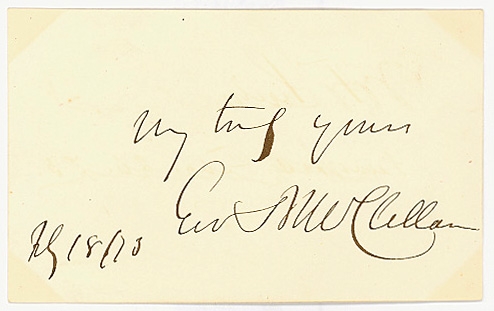 Very truly yours
Geo B McClellan
18/73